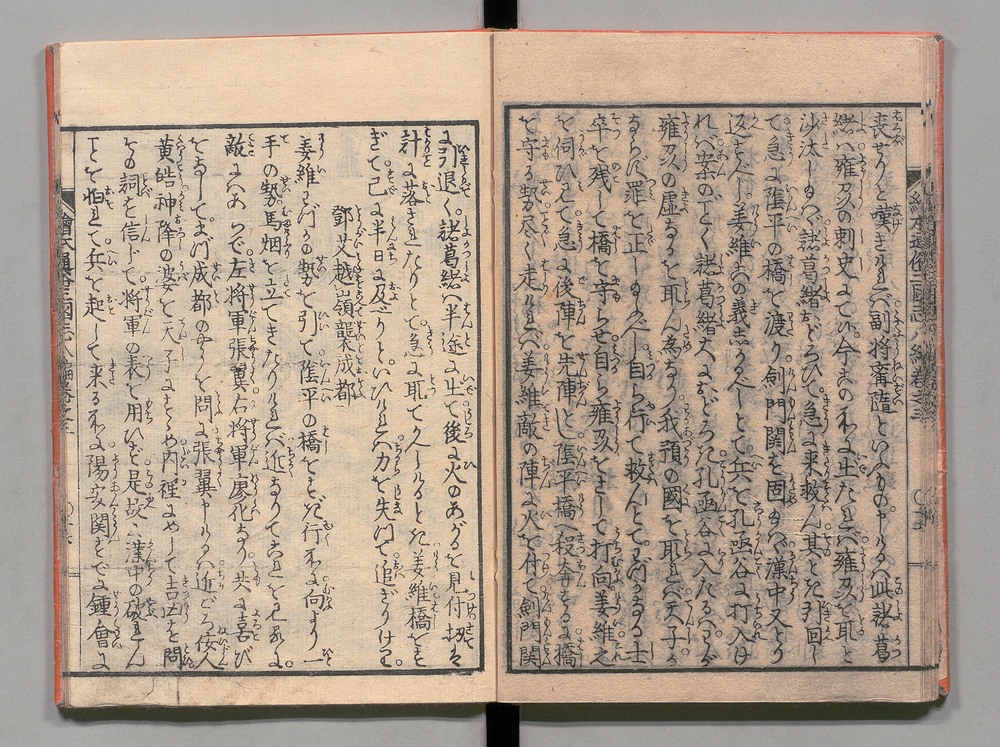 喪せりと嘆きければ副将甯隨といふもの申しけるハ此諸葛
緒ハ雍州の刺史にて候今この所に止たれバ雍州を取と
沙汰しなバ諸葛緒おどろひて急に来救ん其とき引回し
て急に陰平の橋を渡り剣門関を固めバ漢中又とり
返すべし姜維この義然るべしとて兵を孔凾谷に打入け
れバ案のごとく諸葛緒大におどろき孔凾谷に入たるハかならず
雍州の虚なるを取ん為なり我預の國を取れバ天子か
ならず罪を正し玉ふべし自ら行て救んとてわづかなる士
卒を残して橋を守らせ自ら雍州をさして打向姜維之
を伺ひえて急に後陣を先陣とし陰平橋へ殺奔するに橋
を守る勢尽く走けれバ姜維敵の陣に火を付て剣門関
に引退く諸葛緒ハ半途に止て後に火のあがるを見付扨ハ
計に落されたりとて急に取てかへしけるとき姜維橋をす
ぎて已に半日に及べりといひけれバ力を失ひて追ざりけり
鄧艾越嶺襲成都
姜維わづかの勢を引て陰平の橋をすぎ行所に向より一
手の勢馬烟を立てきたりけれバ近なりてこれをミるに
敵にハあらで左将軍張翼右将軍廖化なり共に喜び
をなしてまづ成都のやうを問に張翼申けるハ近ごろ佞人
黄皓神降の婆を天子にすすめ内裡にめして吉凶を問
その詞を信じて将軍の表を用ひず是故に漢中の破れん
ことを怕れて兵を起して来る所に陽安関もすでに鍾會に